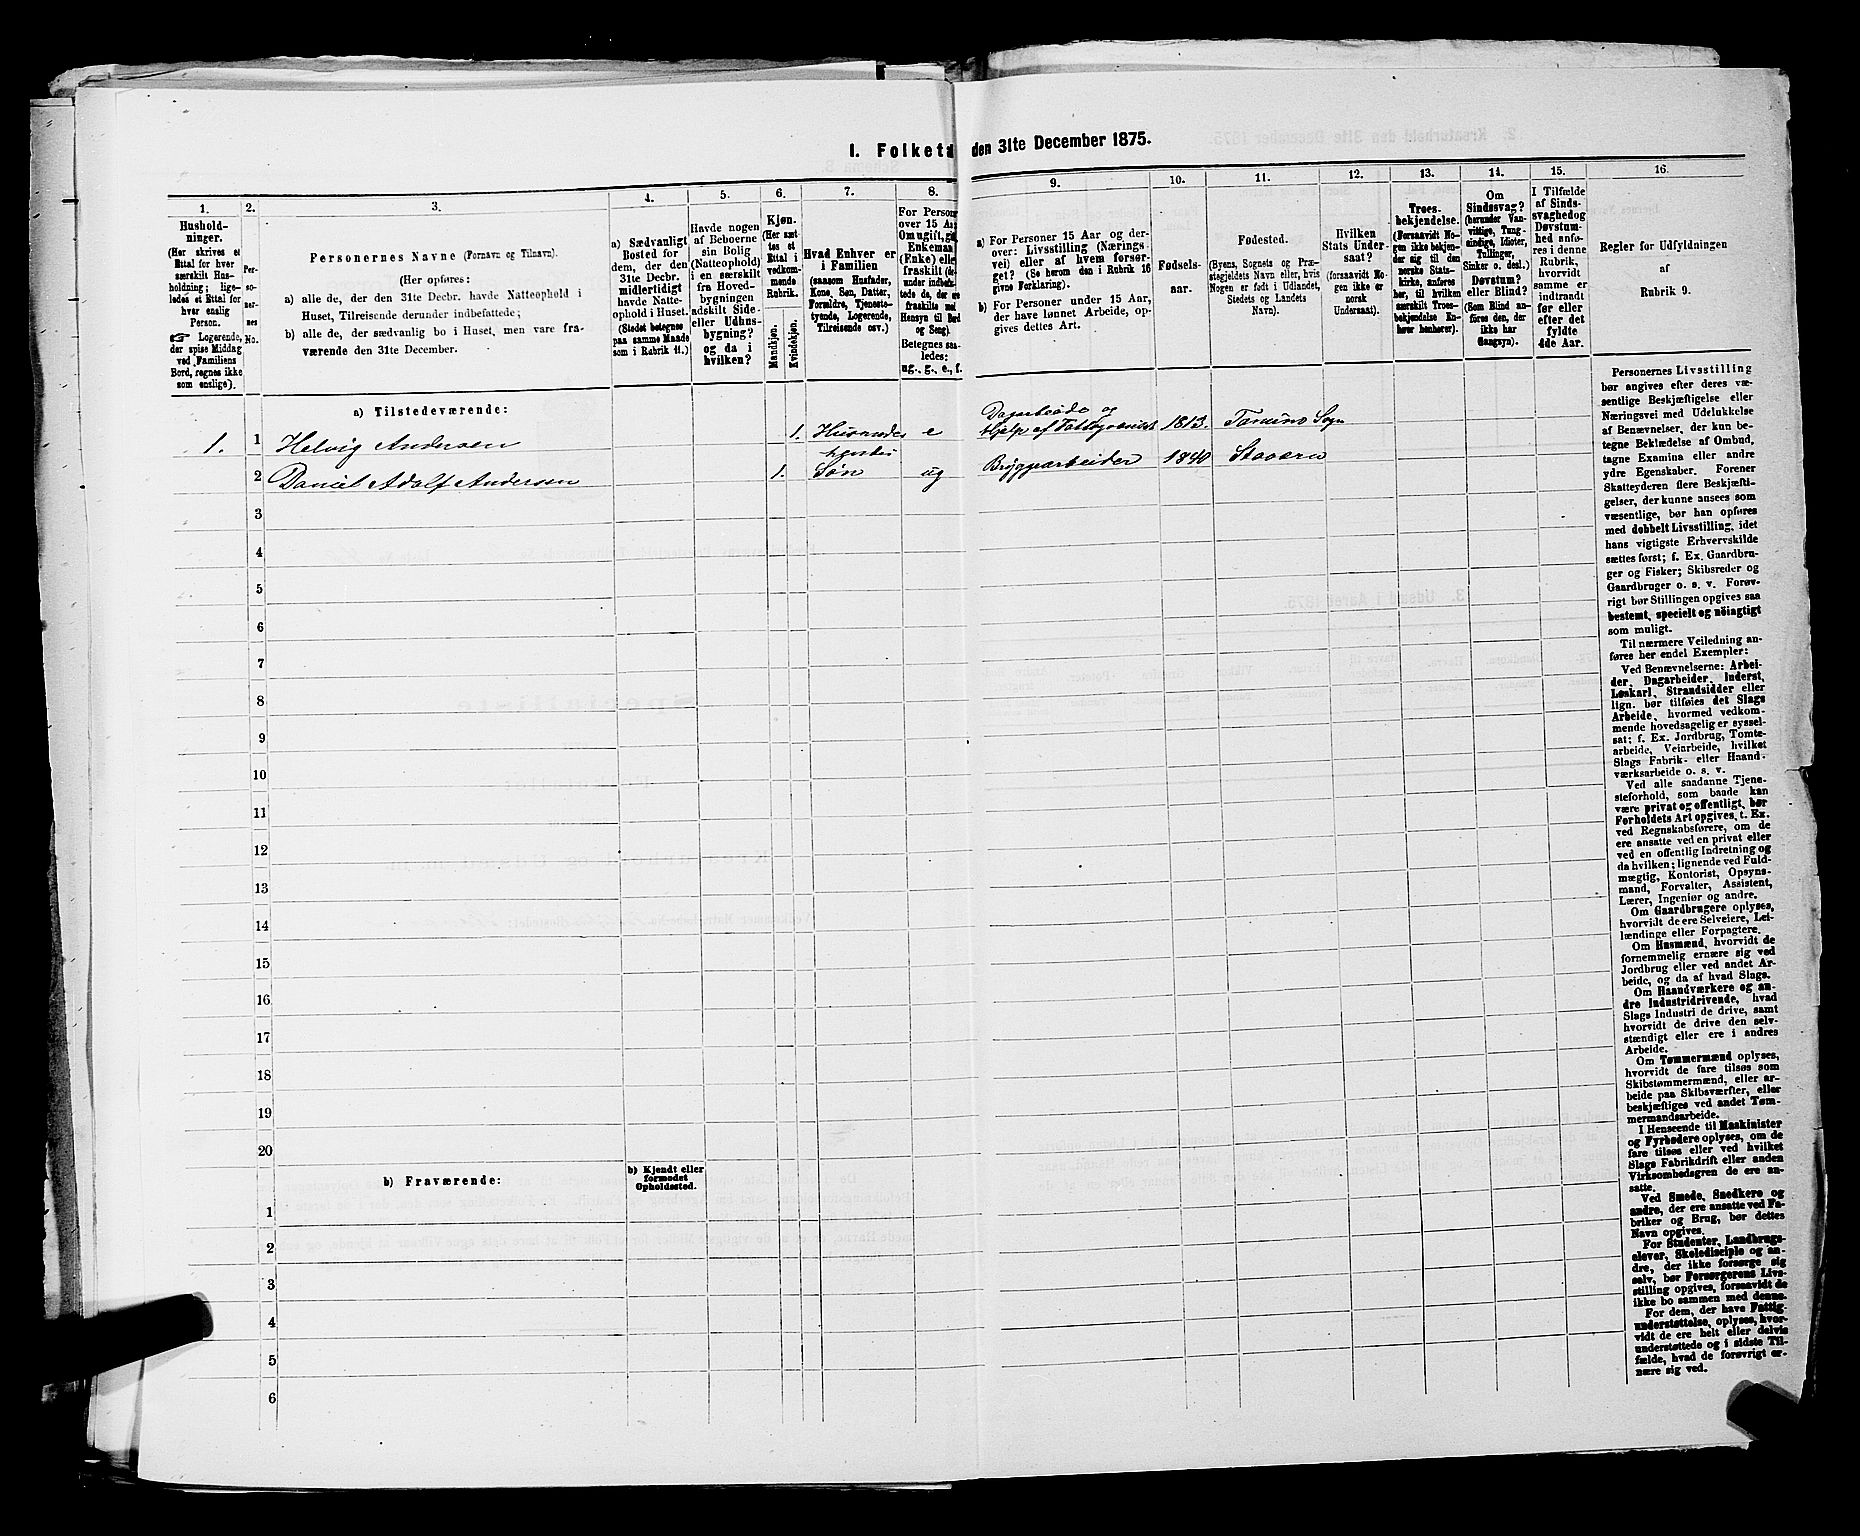 1. Folketa den 31te December 1875.
1.
2.
3.
4.
5.
6.
7.
8.
9.
10.
11.
12.
13.
14.
15.
16.
Hushold-
ninger.
(Her skrives et
Ettal for hver
særskilt Hus-
holdning; lige-
ledes et Ettal for
hver enslig
Person.
☞ Logerende,
der spise Middag
ved Familiens
Bord, regnes ikke
som enslige).
Per-
so-
ner-
nes
No.
Personernes Navne (Fornavn og Tilnavn).
(Her opføres:
a) alle de, der den 31te Decbr. havde Natteophold i
Huset, Tilreisende derunder indbefattede;
b) alle de, der sædvanlig bo i Huset, men vare fra-
værende den 31te December.
a) Sædvanligt
Bosted for
dem, der den
31te Decbr.
midlertidigt
havde Natte-
ophold i Huset.
(Stedet betegnes
paa samme Maade
som i Rubrik 11.)
Havde nogen
af Beboerne
sin Bolig
(Natteophold)
i en særskilt
fra Hoved-
bygningen
adskilt Side-
eller Udhus-
bygning?
og da i
hvilken?
Kjøn.
(Her sæt-
tes et
Ettal i
vedkom-
mende
Rubrik.
Mandkjøn.
Kvindekjøn.
Hvad Enhver er
i Familien
(saasom Husfader,
Kone, Søn, Datter,
Forældre, Tjeneste-
tyende, Logerende,
Tilreisende osv.)
For Person
over 15 Aa
Om ugift, gi
Enkeman
(Enke) elle
fraskilt (de
under indbe
tede de, der ere
fraskilte med
Hensyn til Bord
og Seng).
Betegnes saa-
ledes:
ug., g., e., f.
a) For Personer 15 Aar og der-
over: Livsstilling (Nærings-
vei) eller af hvem forsør-
get? (Se herom den i Rubrik 16
givne Forklaring).
b) For Personer under 15 Aar,
der have lønnet Arbeide, op-
gives dettes Art.
Fødsels-
aar.
Fødested.
(Byens, Sognets og Præ-
stegjeldets Navn eller, hvis
Nogen er født i Udlandet,
Stedets og Landets
Navn).
Hvilken
Stats Under-
saat?
(forsaavidt No-
gen ikke er
norsk
Undersaat).
Troes-
bekjendelse.
(Forsaavidt No-
gen ikke bekjen-
der sig til den
norske Stats-
kirke, anføres
her, til hvilken
særskilt Troes-
bekjendelse En-
hver henhører).
Om
Sindssvag?
(herunder Van-
vittige, Tung-
sindige, Idioter,
Tullinger,
Sinker o. desl.)
Døvstum?
eller Blind?
(Som Blind an-
føres den, der
ikke har
Gangsyn).
I Tilfælde
af Sinds-
svaghed og
Døvstum-
hed anfø-
res i denne
Rubrik,
hvorvidt
samme er
indtraadt
før eller
efter det
fyldte
4de Aar.
Regler for Udfyldningen
af
Rubrik 9.
a) Tilstedeværende:
1. 1 Helvig Andersen 1. Husmoder e Dagarbeide og Hjelp af Fattigvæsenet 1813. Tanums Sogn
2 Daniel Adolf Andersen 1. hendes Søn ug Bryggearbeider 1840 Stavern
3
4
5
6
7
8
9
10
11
12
13
14
15
16
17
18
19
20
b) Fraværende:
b) Kjendt eller
formodet
Opholdssted.
1
2
3
4
5
6
Personernes Livsstilling
bør angives efter deres væ-
sentlige Beskjæftigelse eller
Næringsvei med Udelukkelse
af Benævnelser, der kun be-
tegne Beklædelse af Ombud,
tagne Examina eller andre
ydre Egenskaber. Forener
Skatteyderen flere Beskjæfti-
gelser, der kunne ansees som
væsentlige, bør han opføres
med dobbelt Livsstilling, idet
hans vigtigste Erhvervskilde
sættes først; f. Ex. Gaardbru-
ger og Fisker; Skibsreder og
Gaardbruger o. s. v. Forøv-
rigt bør Stillingen opgives saa
bestemt, specielt og nöiagtigt
som muligt.
Til nærmere Veiledning an-
føres her endel Exempler:
Ved Benævnelserne: Arbei-
der, Dagarbeider, Inderst,
Løskarl, Strandsidder eller
lign. bør tilføies det Slags
Arbeide, hvormed vedkom-
mende hovedsagelig er syssel-
sat; f. Ex. Jordbrug, Tomte-
arbeide, Veiarbeide, hvilket
Slags Fabrik- eller Haand-
værksarbeide o. s. v.
Ved alle saadanne Tjene-
steforhold, som baade kan
være privat og offentligt, bør
Forholdets Art opgives, t. Ex.
ved Regnskabsførere, om de
ere ansatte ved en privat eller
ved en offentlig Indretning og
da hvilken; lignende ved Fuld-
mægtig, Kontorist, Opsyns-
mand, Forvalter, Assistent,
Lærer, Ingeniør og andre.
Om Gaardbrugere oplyses,
hvorvidt de ere Selveiere, Lei-
lændinge eller Forpagtere.
Om Husmænd, hvorvidt de
fornemmelig ernære sig ved
Jordbrug eller ved andet Ar-
beide, og da af hvad Slags.
Om Haandværkere og an-
dre Industridrivende, hvad
Slags Industri de drive, samt
hvorvidt de drive den selv-
stændigt eller ere i andres
Arbeide.
Om Tømmermænd oplyses,
hvorvidt de fare tilsøs som
Skibstømmermænd, eller ar-
beide paa Skibsværfter, eller
beskjæftiges ved andet Tøm-
mermandsarbeide.
I Henseende til Maskinister
og Fyrbødere oplyses, om de
fare tilsøs eller ved hvilket
Slags Fabrikdrift eller anden
Virksomhedsgren de ere an-
satte.
Ved Smede, Snedkere og
andre, der ere ansatte ved Fa-
briker og Brug, bør dettes
Navn opgives.
For Studenter, Landbrugs-
elever, Skoledisciple og an-
dre, der ikke forsørge sig
selv, bør Forsørgerens Livs-
stilling opgives, forsaavidt de
ikke bo sammen med denne.
For dem, der have Fattig-
understøttelse, oplyses, hvor-
vidt de ere helt eller delvis
understøttede og i sidste Til-
fælde, hvad de forøvrigt er-
nære sig ved.